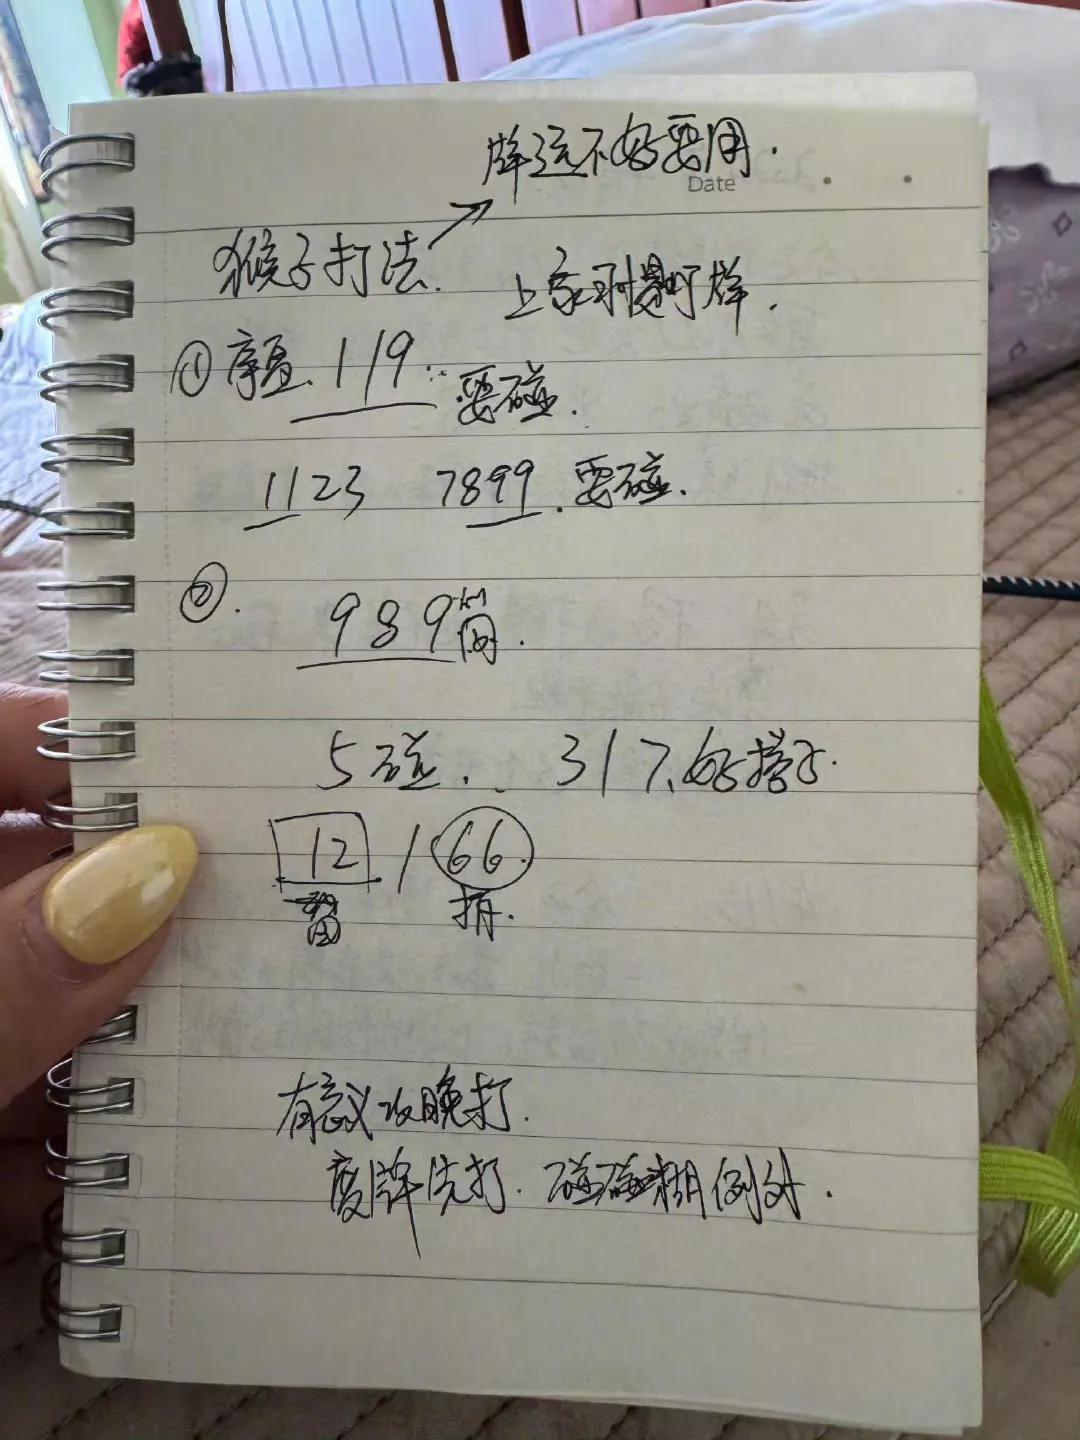 牌运不好要用.
Date
猴子打法.
上家 牌.
① 119. 要碰.
1123 7899. 要碰.
②. 989筒.
5碰. 317.好搭子.
12 / 66.
留 捐.
有意义 晚打.
废牌先打. 碰碰糊例外.